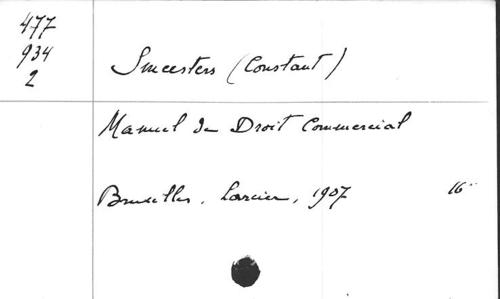 477
934
2
Smeesters (Constant)
Manuel de Droit Commercial
Bruxelles, Larcier, 1907 16°